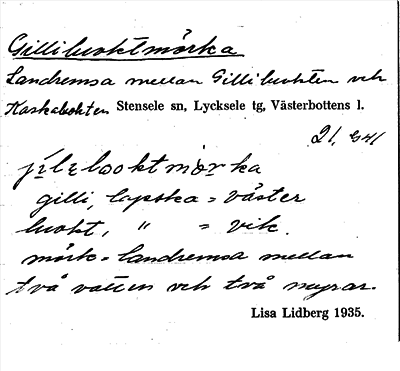 Gilliluoktmörka
Landremsa mellan Gilliluokten och
Kaskaluokten Stensele sn, Lycksele tg, Västerbottens l.
21,
gilli, lapska = väster
luokt, " = vik.
mörk = landremsa mellan
två vatten och två myrar.
Lisa Lidberg 1935.